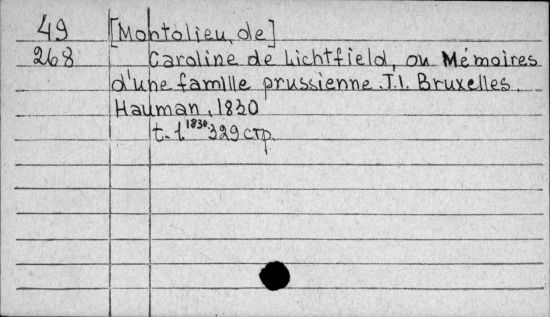 49 [Montolieu, de]
268 Caroline de Lichtfield, ou Mémoires
d'une famille prussienne. T.1. Bruxelles.
Hauman, 1830
t. 1. 1830. 329 стр.